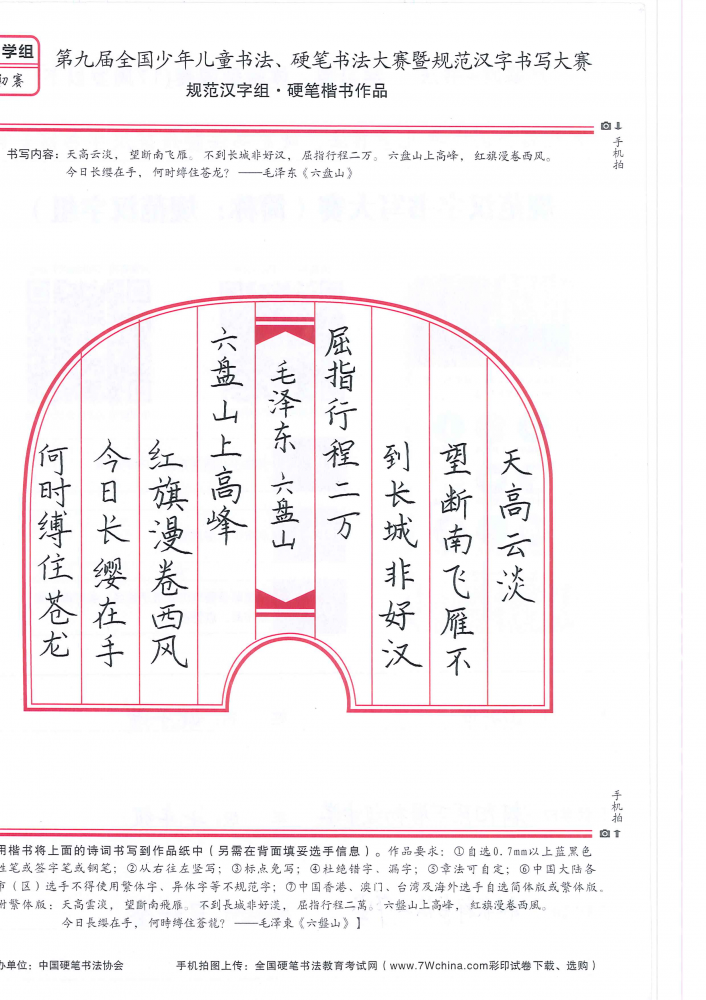 学组
初赛
第九届全国少年儿童书法、硬笔书法大赛暨规范汉字书写大赛
规范汉字组·硬笔楷书作品
手机拍
书写内容：天高云淡，望断南飞雁。不到长城非好汉，屈指行程二万。六盘山上高峰，红旗漫卷西风。
今日长缨在手，何时缚住苍龙？——毛泽东《六盘山》
天高云淡
望断南飞雁不
到长城非好汉
屈指行程二万
毛泽东 六盘山
六盘山上高峰
红旗漫卷西风
今日长缨在手
何时缚住苍龙
手机拍
用楷书将上面的诗词书写到作品纸中（另需在背面填妥选手信息）。作品要求：①自选0.7mm以上蓝黑色
性笔或签字笔或钢笔；②从右往左竖写；③标点免写；④杜绝错字、漏字；⑤章法可自定；⑥中国大陆各
市（区）选手不得使用繁体字、异体字等不规范字；⑦中国香港、澳门、台湾及海外选手自选简体版或繁体版。
附繁体版：天高雲淡，望斷南飛雁。不到長城非好漢，屈指行程二萬。六盤山上高峰，紅旗漫卷西風。
今日長纓在手，何時縛住蒼龍？——毛澤東《六盤山》】
办单位：中国硬笔书法协会
手机拍图上传：全国硬笔书法教育考试网（www.7Wchina.com彩印试卷下载、选购）